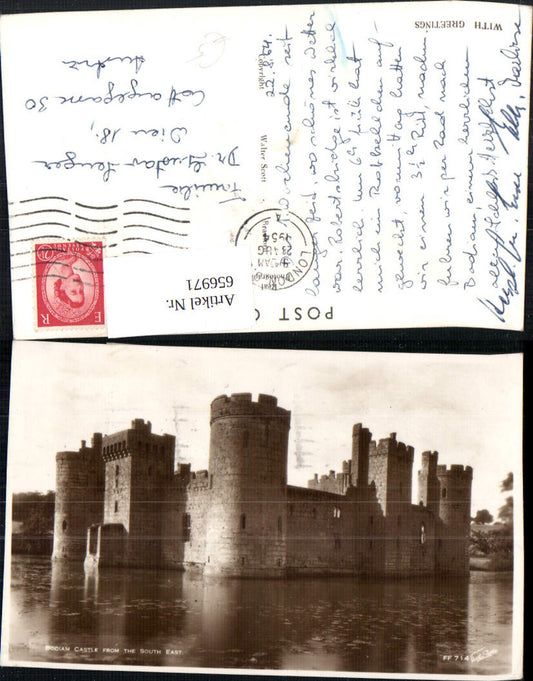 WITH GREETINGS
POST C
Copyright
Walter Scott
Real
Photograph
22.8.54.
Wochenende seit
langer Zeit, wo schönes Wetter
war. Robertsbridge ist wirklich
herrlich. Um 6h früh hat
mich ein Rotkehlchen auf
geweckt vormittag hatten
wir einen 3½h Ritt, nachm.
fuhren wir per Rad nach
Bodiam, einem herrlichen
Familie
Dr. Gustav
Wien 18,
Cottagegasse 30
Austria
LONDON
AM
23 AUG
1954
E R
Artikel Nr.
656971
BODIAM CASTLE FROM THE SOUTH EAST
FF 714